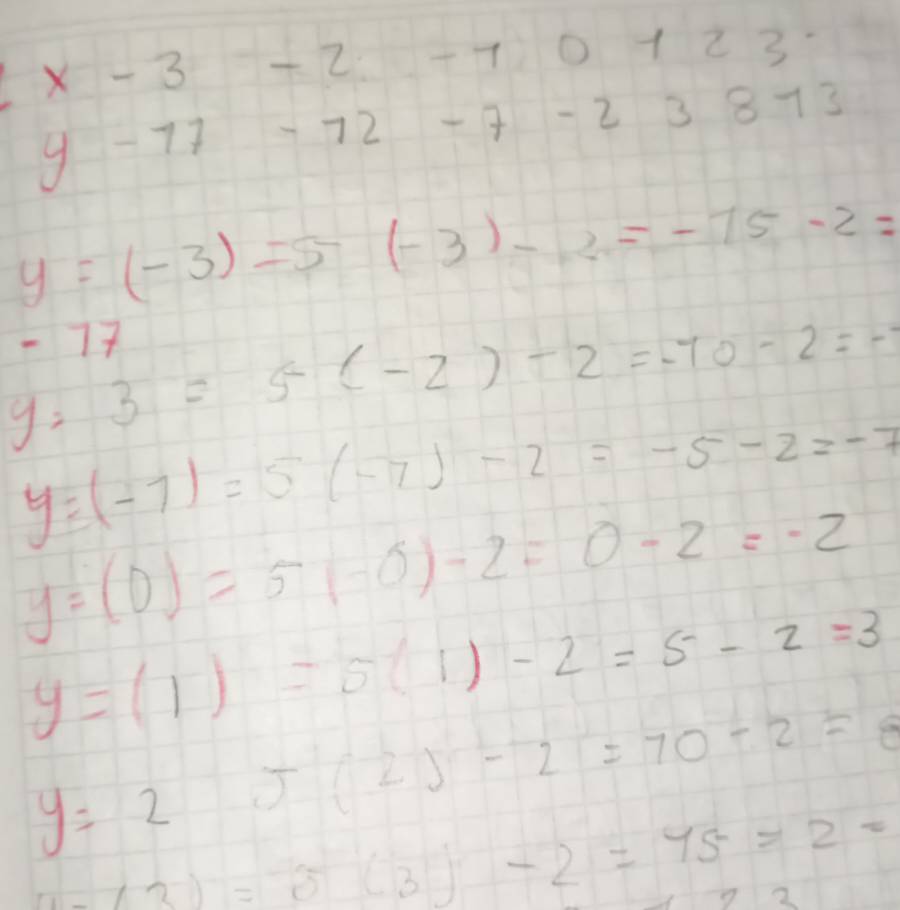 x -3 -2 -1 0 1 2 3
y -17 -12 -7 -2 3 8 13
y = (-3) = 5 (-3) - 2 = -15 - 2 =
- 17
y = 3 = 5 (-2) - 2 = -10 - 2 = -
y = (-1) = 5 (-1) - 2 = -5 - 2 = -7
y = (0) = 5 (-0) - 2 = 0 - 2 = -2
y = (1) = 5 (1) - 2 = 5 - 2 = 3
y = 2 5 (2) - 2 = 10 - 2 =
(3) = 5 (3) - 2 = 15 = 2 =